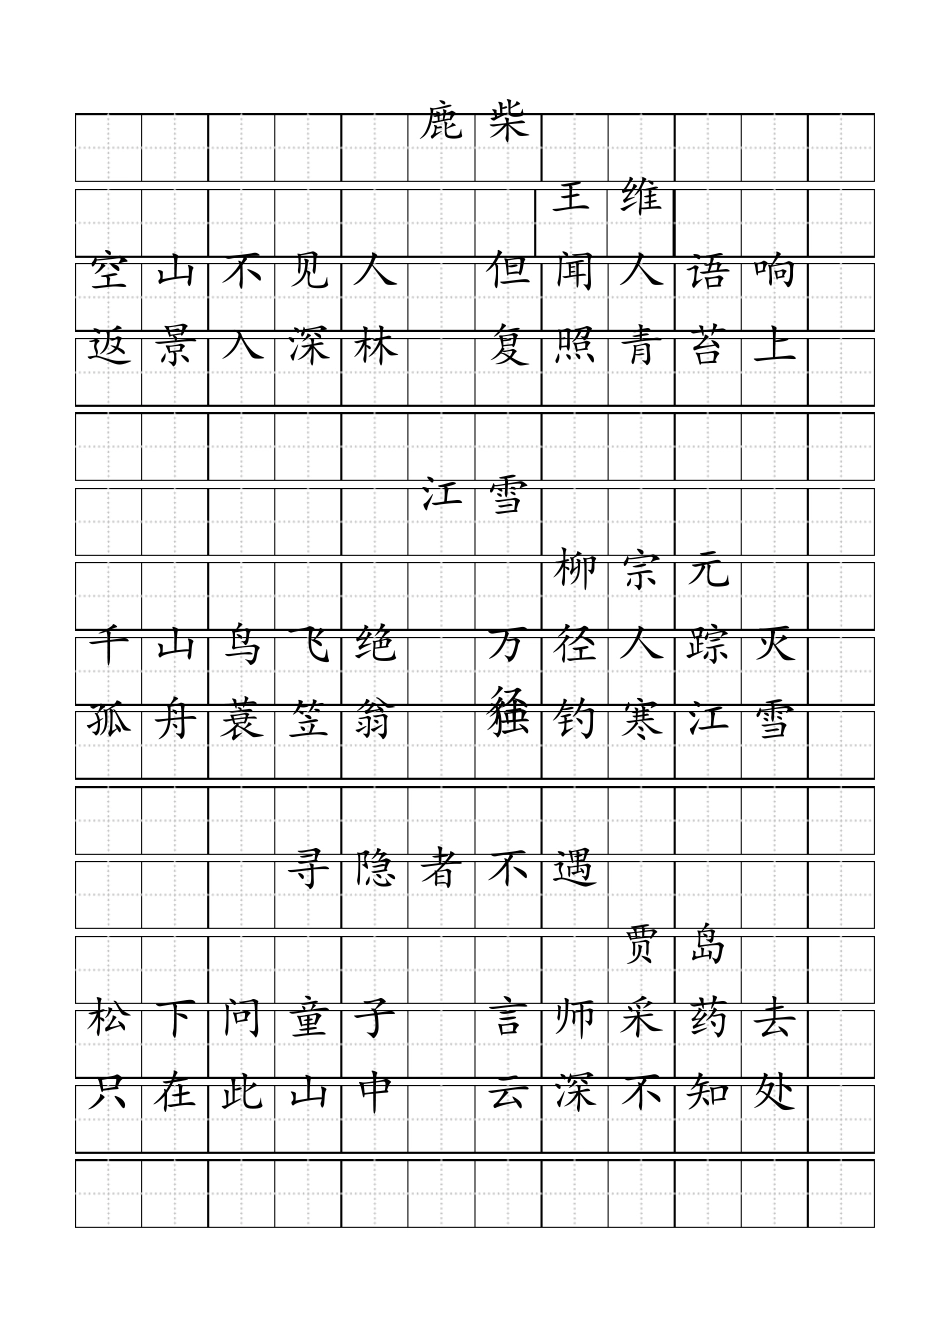 鹿柴
王维
空山不见人 但闻人语响
返景入深林 复照青苔上
江雪
柳宗元
千山鸟飞绝 万径人踪灭
孤舟蓑笠翁 独钓寒江雪
寻隐者不遇
贾岛
松下问童子 言师采药去
只在此山中 云深不知处